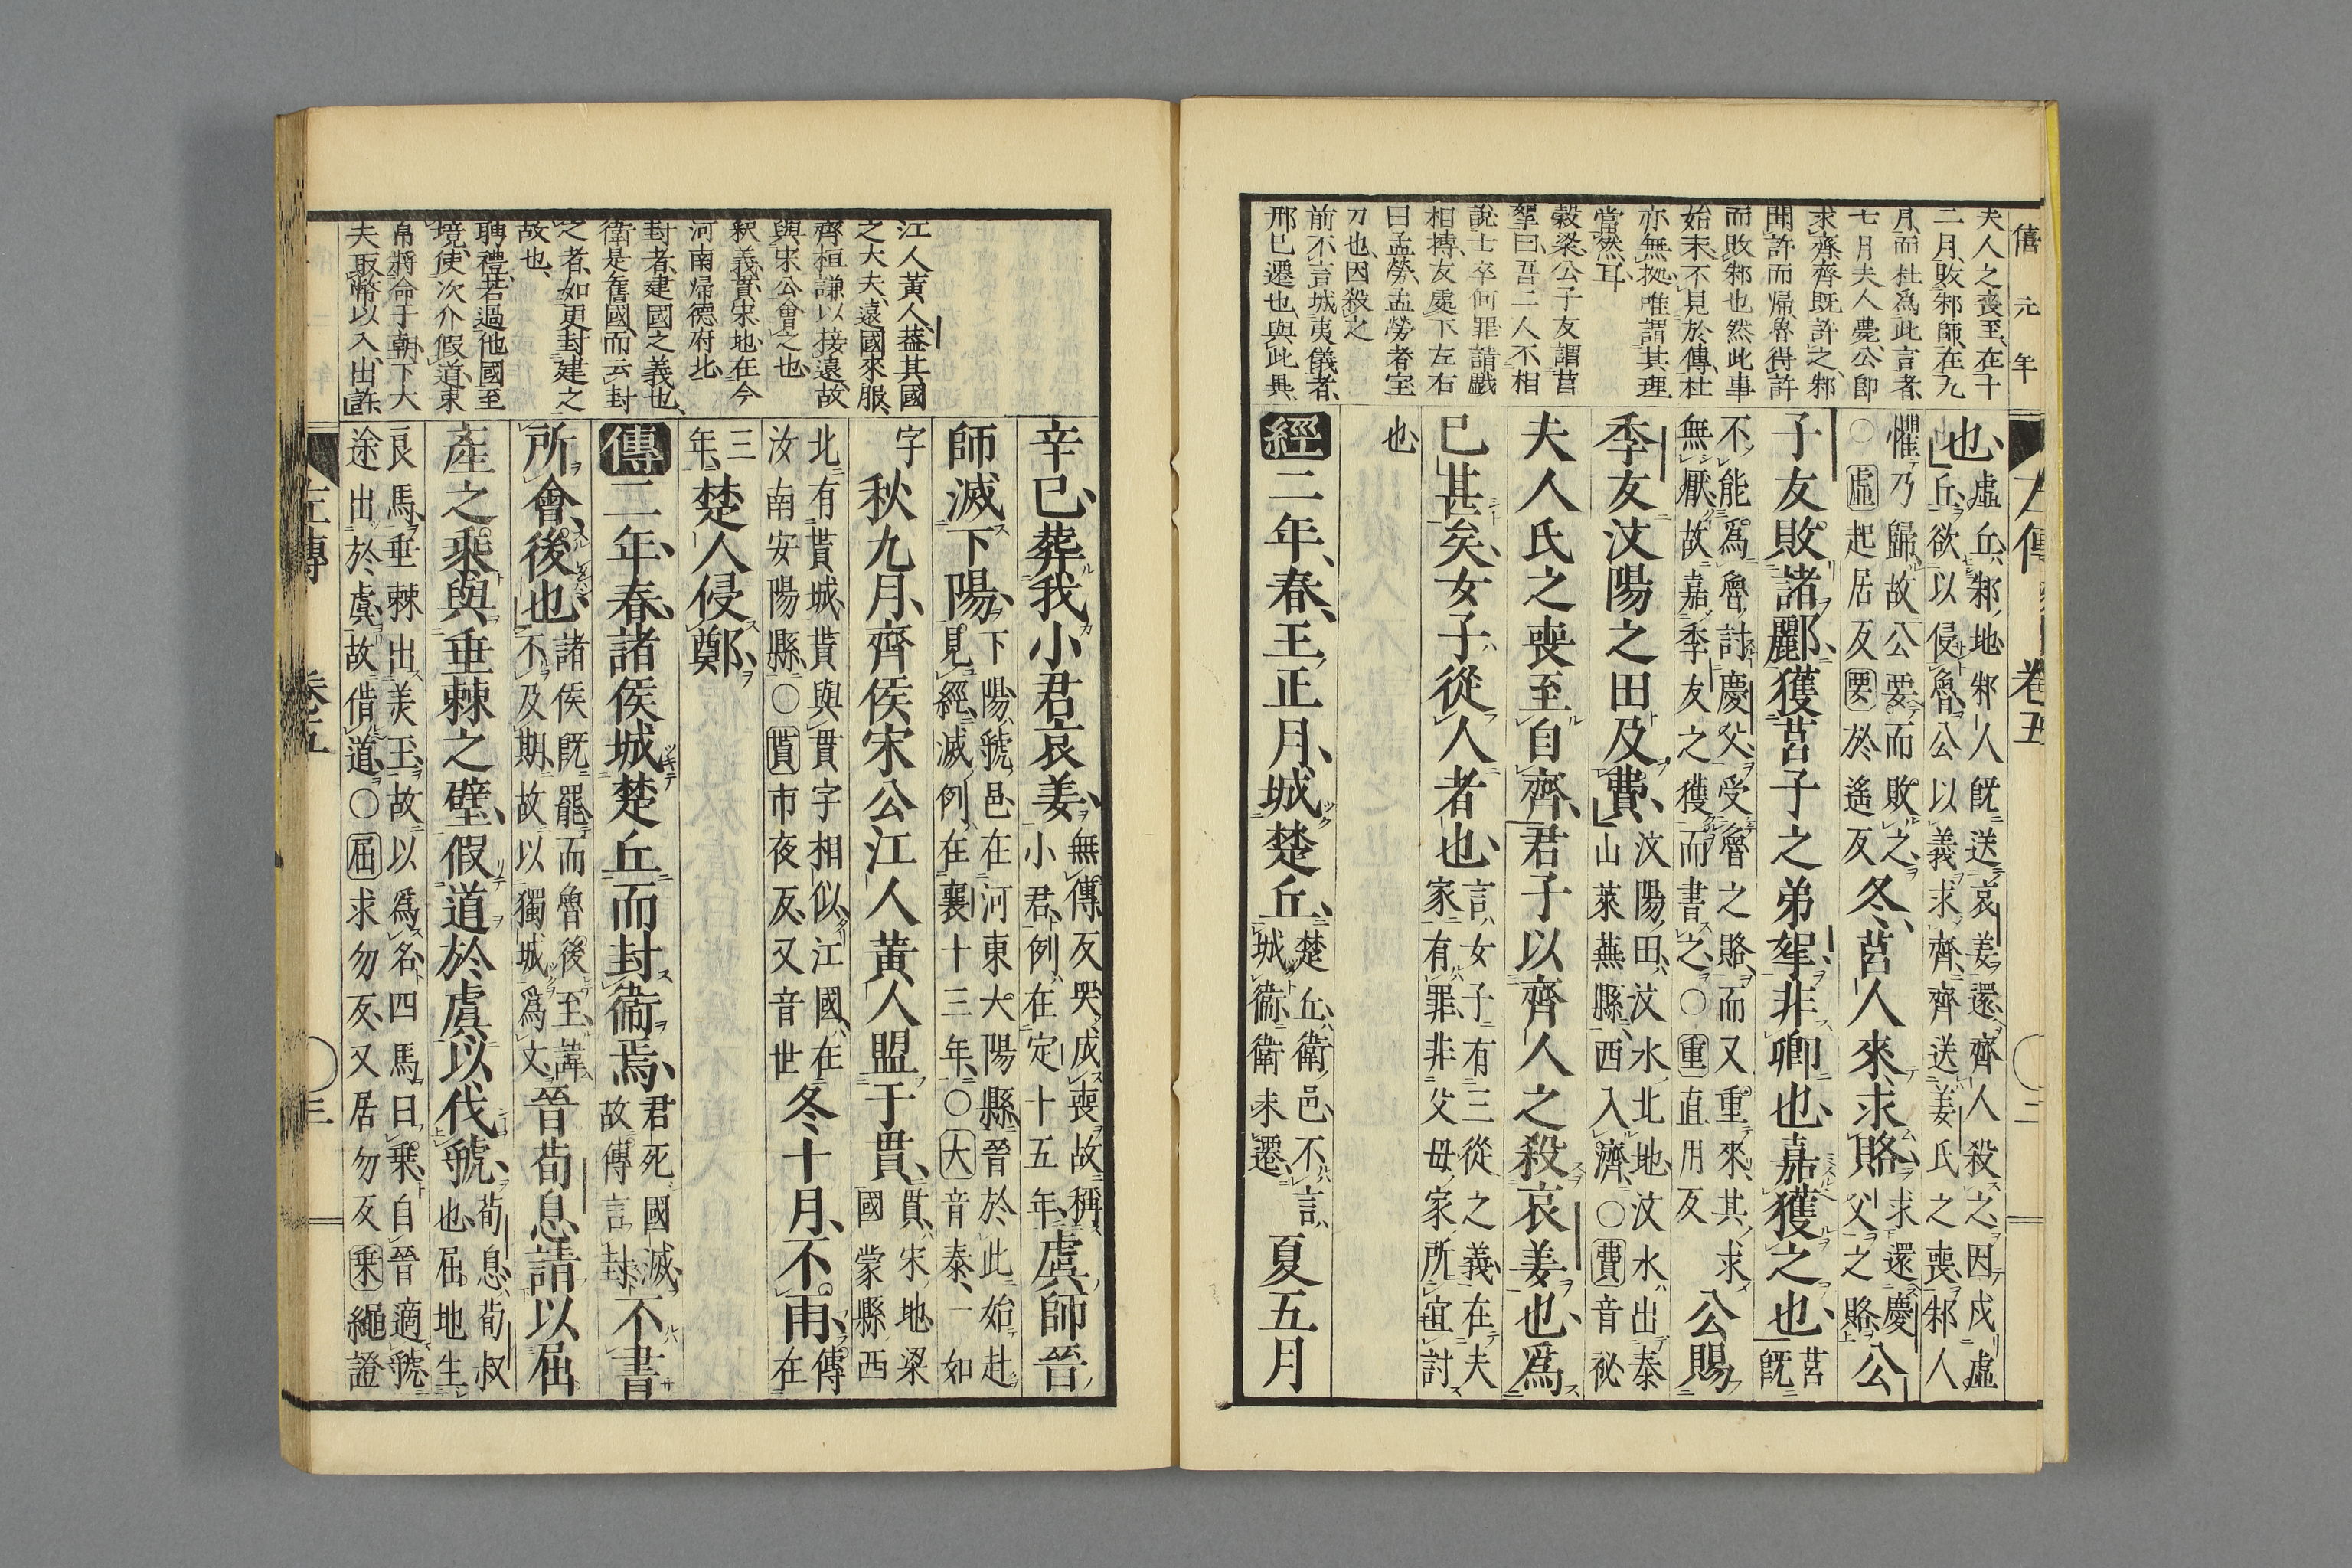 僖元年
夫人之喪至、在十
二月、敗邾師、在九
月、而杜爲此言者、
七月夫人薨、公卽
求齊、齊既許之、邾
聞許而歸、魯得許
而敗邾也然此事
始末、不見於傳、杜
亦無拠、唯謂其理
當然耳、
穀梁、公子友謂莒
挐曰、吾二人不相
說士卒何罪請戲
相搏、友處下左右
曰孟勞、孟勞者宝
刀也、因殺之
前不言城夷儀者、
邢巳遷也、與此異、
左傳 卷五 二
也、虛丘、邾地邾人既送哀姜還、齊人殺之、因戍虛丘、欲以侵魯、公以義求齊、齊送姜氏之喪、邾人
懼乃歸、故公要而敗之、○虛起居反要於遙反冬、莒人來求賂、求還慶父之賂公
子友敗諸酈、獲莒子之弟挐、非卿也、嘉獲之也、莒既
不能爲魯討慶父、受魯之賂、而又重來、其求無厭、故嘉季友之獲而書之、○重直用反公賜
季友汶陽之田及費、汶陽田、汶水北地、汶水出泰山萊蕪縣、西入濟、○費音祕
夫人氏之喪至自齊、君子以齊人之殺哀姜也、爲
巳甚矣、女子從人者也、言女子有三從之義、在夫家有罪、非父母家所宜討
也、
經二年、春、王正月、城楚丘、楚丘、衛邑、不言城衛、衛未遷、夏五月
江人黃人、蓋其國
之大夫、遠國來服、
齊桓謙以接遠、故
與宋公會之也、
釈義、貫、宋地、在今
河南歸德府北、
封者、建國之義也、
衛是舊國、而云封
之者、如更封建之
故也、
聘禮、若過他國至
境、使次介假道、束
帛將命于朝、下大
夫取幣以入、出許、
辛巳、葬我小君哀姜、無傳、反哭成喪、故稱小君、例在定十五年、虞師晉
師滅下陽、下陽、虢邑、在河東大陽縣、晉於此始赴見經、滅例在襄十三年、○大音泰、一如
字秋九月、齊侯宋公江人黃人盟于貫、貫、宋地、梁國蒙縣西
北有貰城、貰與貫字相似、江國、在汝南安陽縣、○貰市夜反、又音世冬十月、不雨、傳在
三年、楚人侵鄭、
傳二年、春、諸侯城楚丘而封衛焉、君死國滅、故傳言封不書
所會、後也、諸侯既罷、而魯後至、諱不及期、故以獨城爲文、晉荀息請以屈
產之乘與垂棘之璧、假道於虞以伐虢、荀息、荀叔也、屈地生
良馬、垂棘出美玉、故以爲名、四馬曰乘、自晉適虢途出於虞、故借道、○屈求勿反、又居勿反乘繩證
左傳 卷五 三